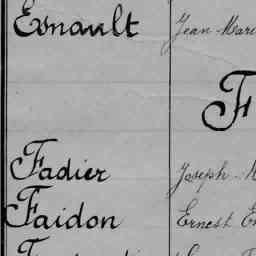 Esnault Jean Mari
F
Fadier Joseph M
Faidon Ernest E